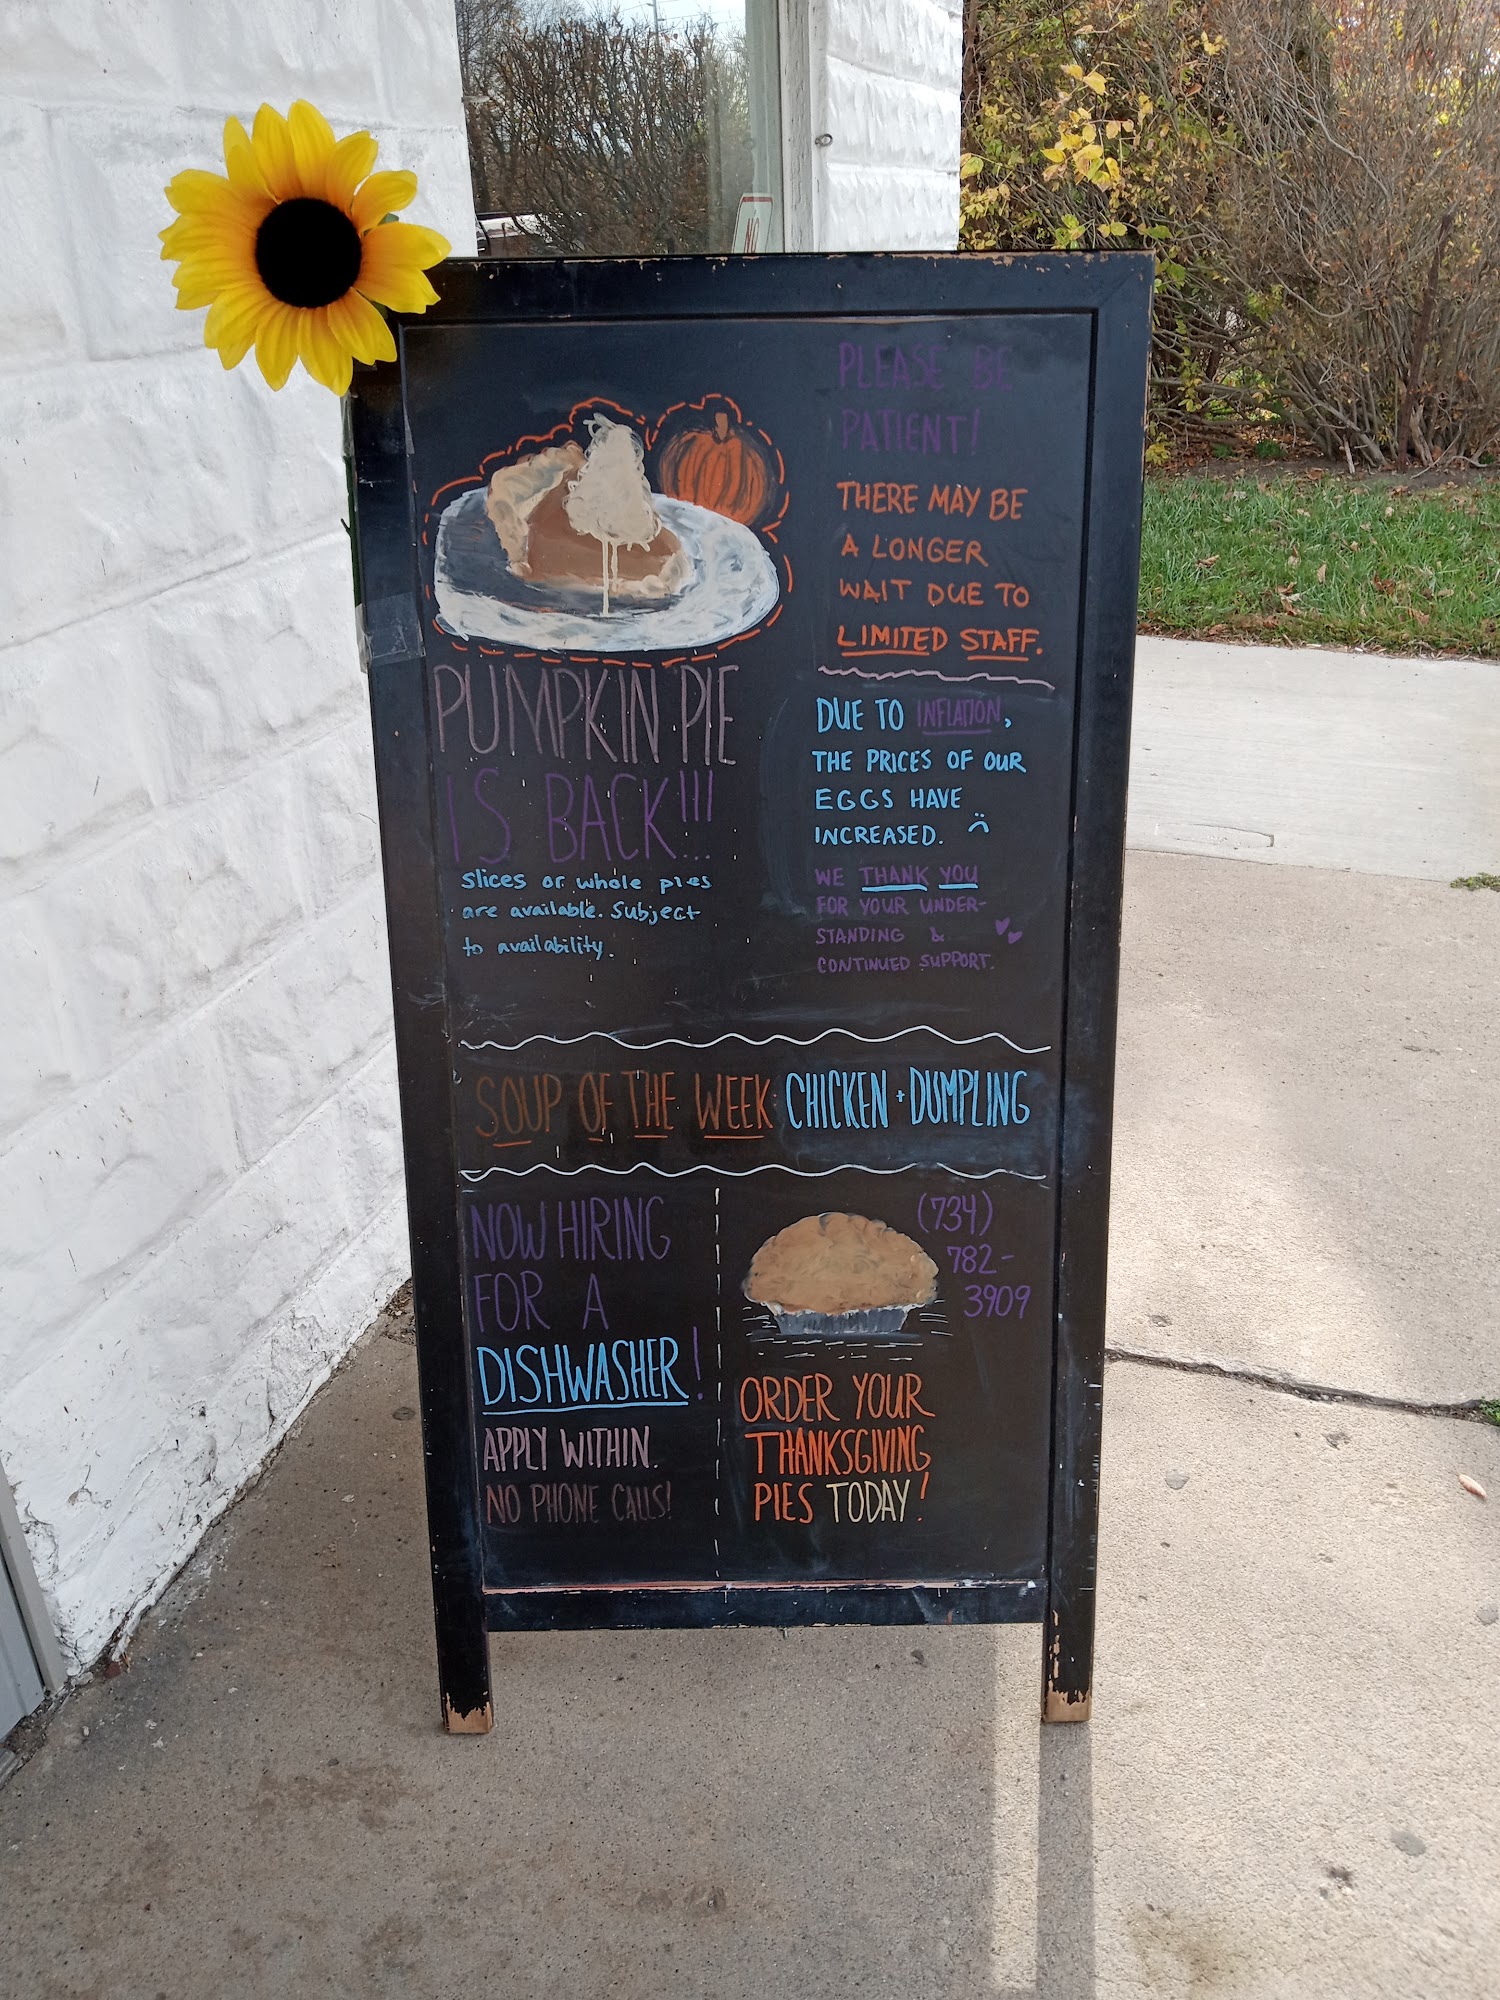 PUMPKIN PIE
IS BACK!!!
slices or whole pies
are available. Subject
to availability.
PLEASE BE
PATIENT!
THERE MAY BE
A LONGER
WAIT DUE TO
LIMITED STAFF.
DUE TO INFLATION,
THE PRICES OF OUR
EGGS HAVE
INCREASED.
WE THANK YOU
FOR YOUR UNDER-
STANDING &
CONTINUED SUPPORT.
SOUP OF THE WEEK: CHICKEN + DUMPLING
NOW HIRING
FOR A
DISHWASHER!
APPLY WITHIN.
NO PHONE CALLS!
(734)
782-
3909
ORDER YOUR
THANKSGIVING
PIES TODAY!
NO